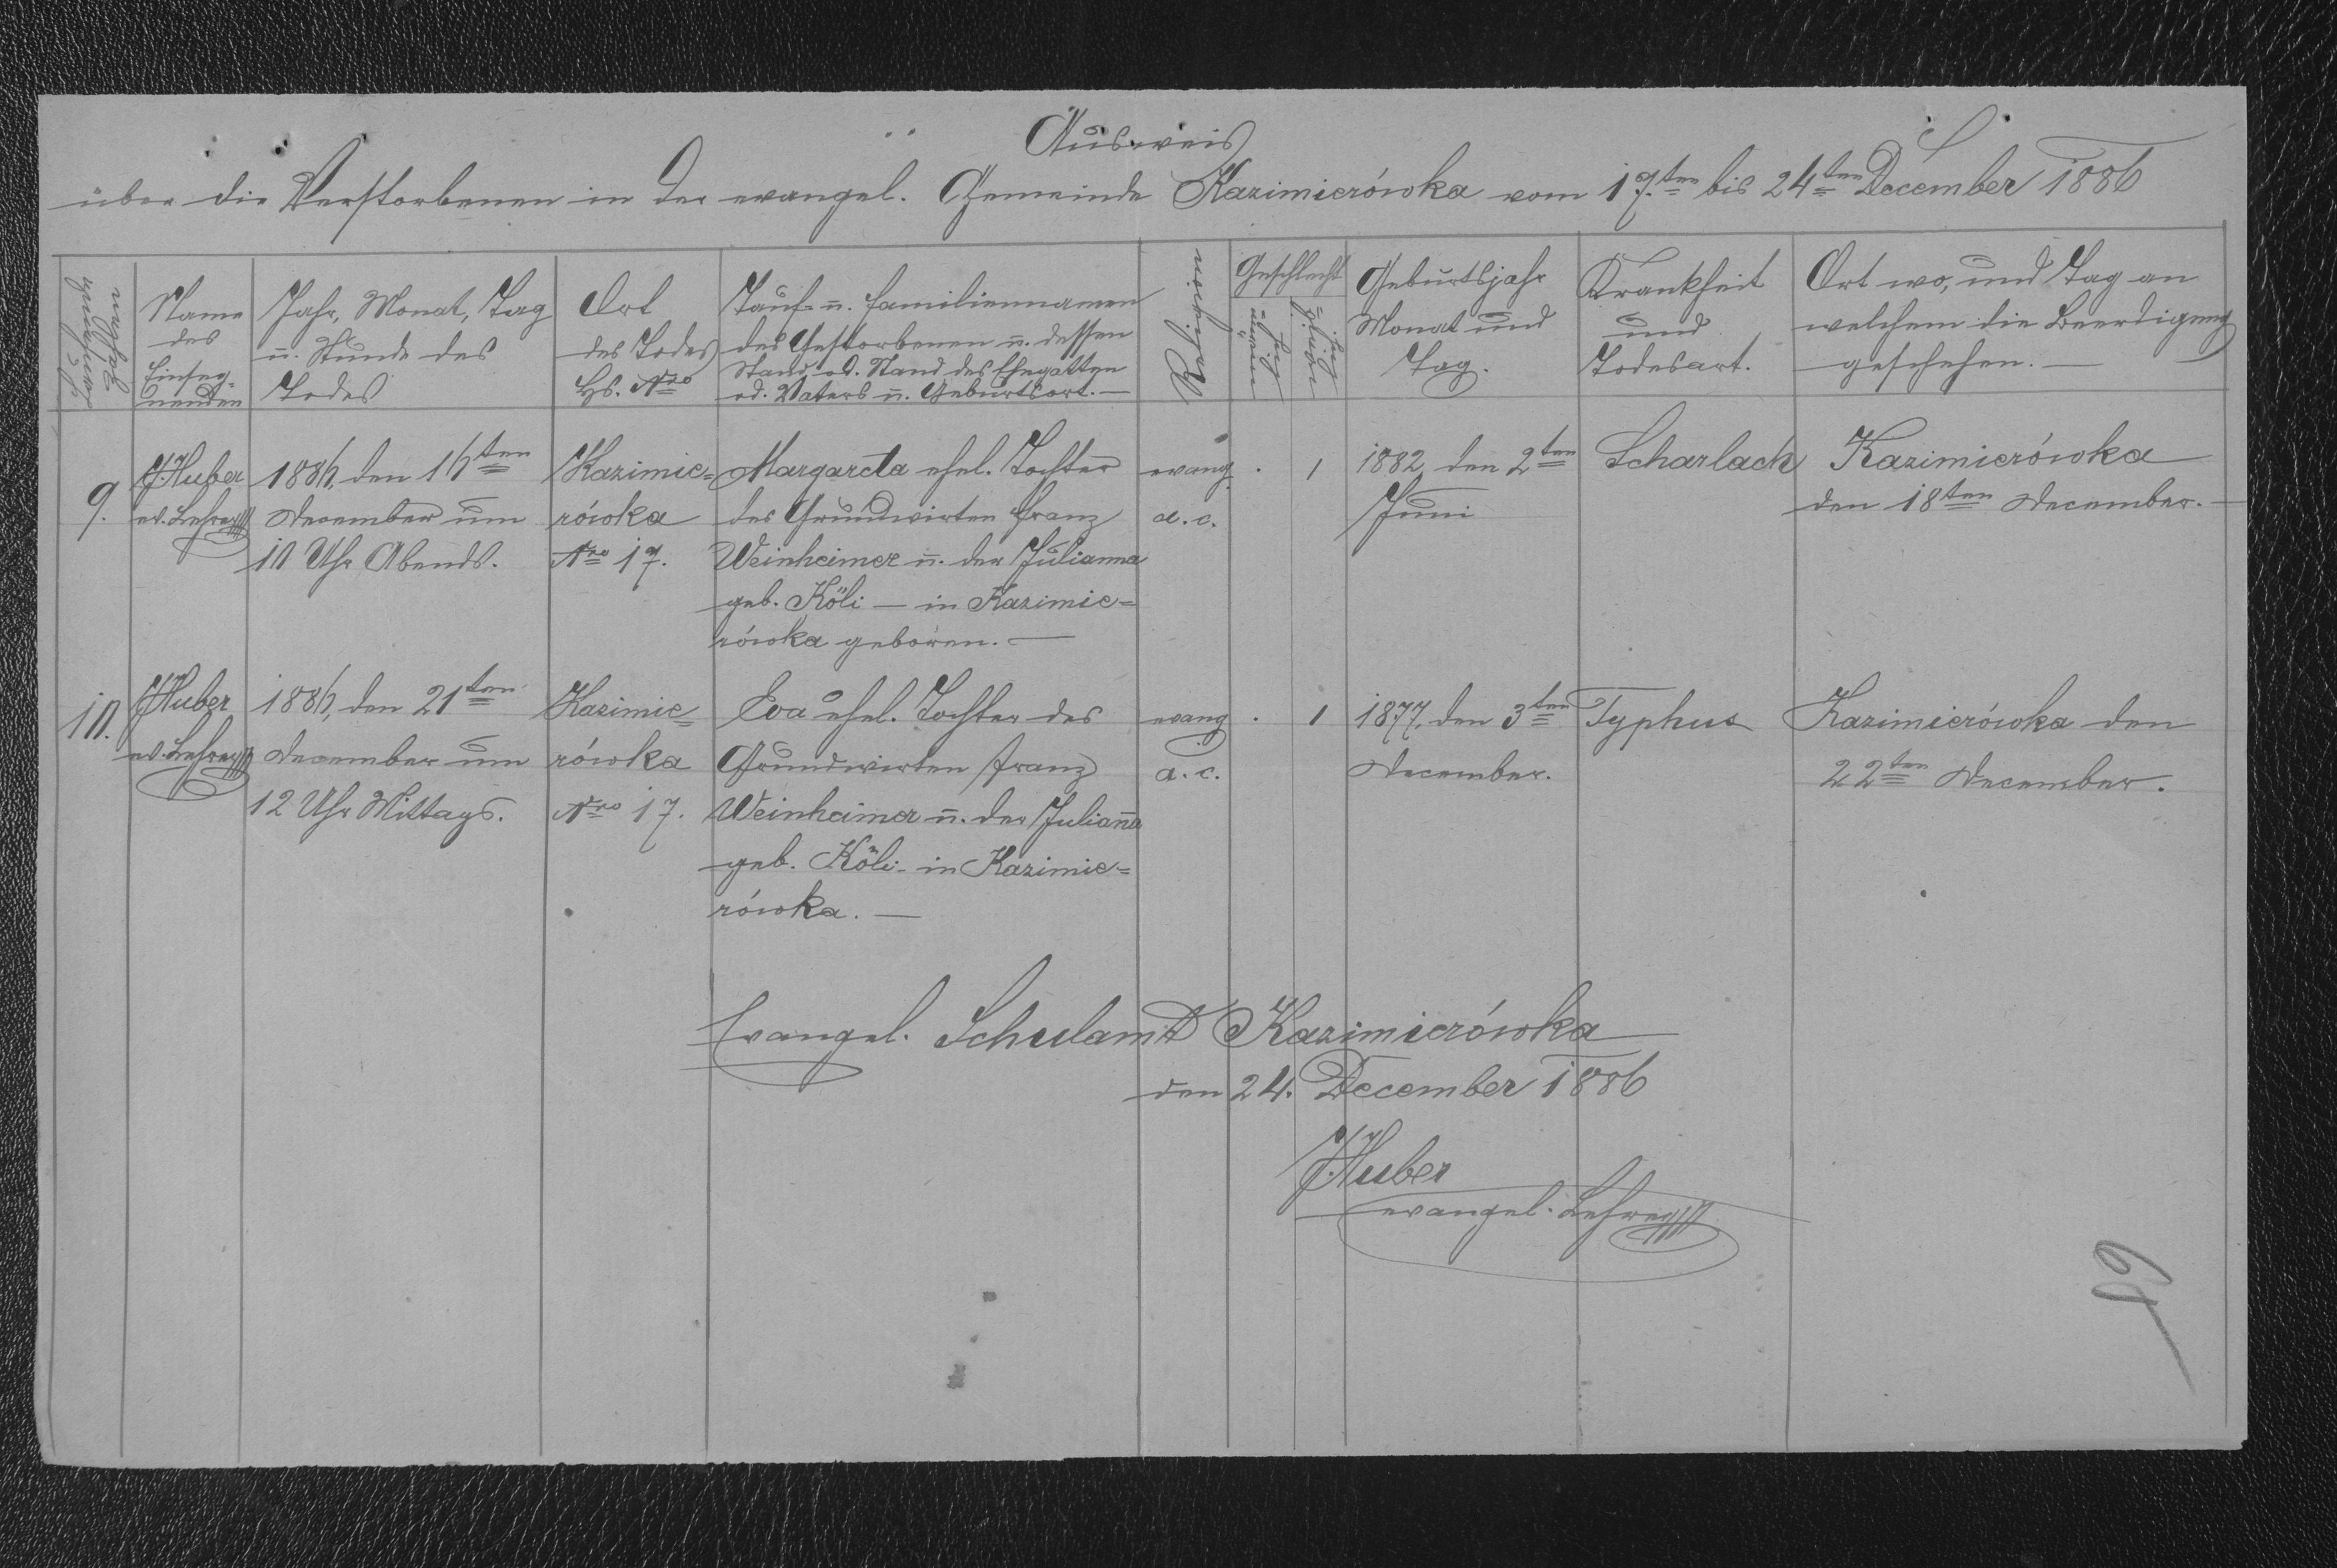 Ausweis
über die Verstorbenen in der evangel. Gemeinde Kazimierówka vom 17.ten bis 24ten December 1886
Name des Einseg-nenden
Jahr, Monat, Tag u. Stunde des Todes
Ort des Todes Hs. Nro
Tauf- u. Familiennamen des Gestorbenen u. dessen Stand, od. Stand des Ehegatten od. Vaters u. Geburtsort.—
Religion
Geschlecht
Geburtsjahr Monat und Tag.
Krankheit und Todesart.
Ort wo, und Tag an welchem die Beerdigung geschehen.—
9.
J. Huber
ev. Lehrer
1886, den 16ten
December um
10 Uhr Abends.
Kazimie=
rówka
Nro 17.
Margareta ehel. Tochter
des Grundwirten Franz
Weinheimer u. der Julianna
geb. Köli — in Kazimie=
rówka geboren. —
evang.
a. c.
. 1
1882, den 2ten
Juni
Scharlach
Kazimierówka
den 18ten December. —
10.
J. Huber
ev. Lehrer
1886, den 21ten
December um
12 Uhr Mittags.
Kazimie=
rówka
Nro 17.
Eva ehel. Tochter des
Grundwirten Franz
Weinheimer u. der Julian̄a
geb. Köli - in Kazimie=
rówka. —
evang.
a. c.
. 1
1877, den 3ten
December.
Typhus
Kazimierówka den
22ten December.
Evangel. Schulamt Kazimierówka
den 24. December 1886
J. Huber
evangel. Lehrer